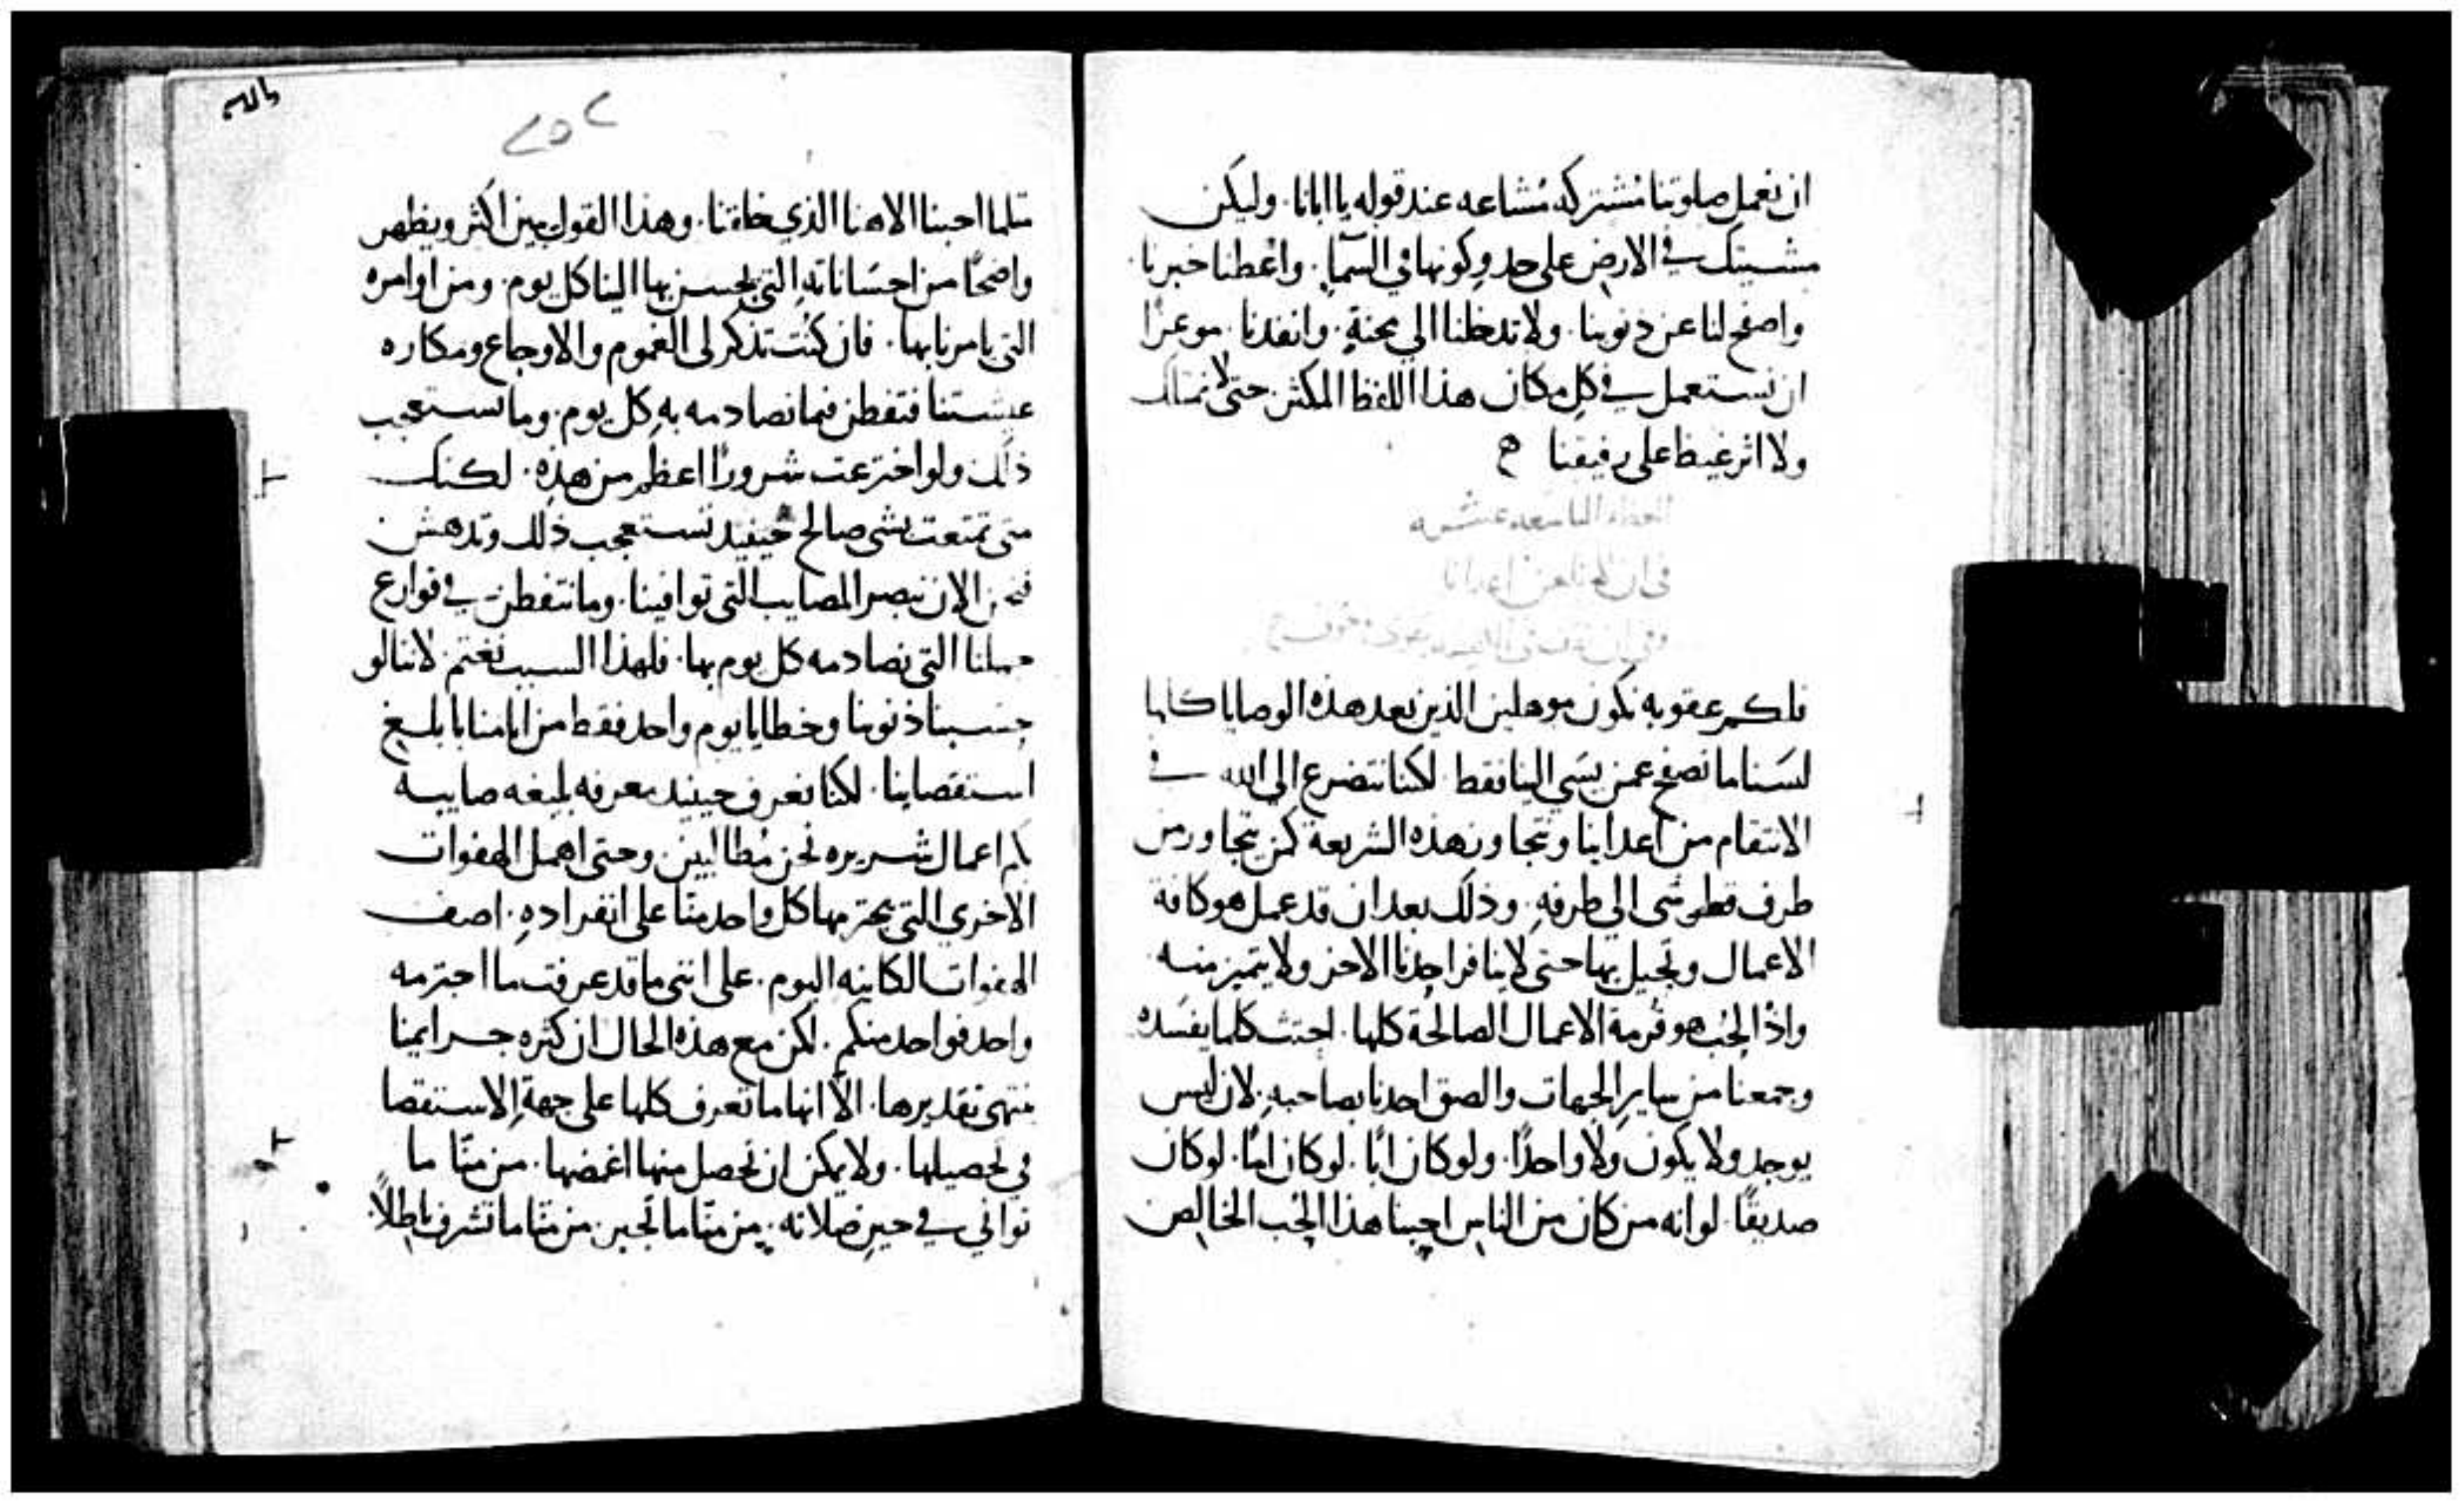 ان نعمل صلوتنا مُشتركه مُشاعه عند قوله يا ابانا. وليكن
مشيتك في الارض على حد وكونها في السمآ. واعْطنا خبزنا.
واصفح لنا عن ذنوبنا. ولا تدخلنا الي محنةٍ. وانقذنا. موعزًا
ان نستعمل في كل مكان هذا اللفظ المكثر حتى لا نمتلك
ولا اثر غيظ على رفيقنا
العظه التاسعه عشره
في ان
فلكم عقوبه نكون موهلين الذين بعد هذه الوصايا كلها
لسَنا ما نصفح عمن يسَي الينا فقط لكنا نتضرع الي الله في
الانتقام من اعداينا ونتجاوز هذه الشريعة كمن يتجاوز من
طرف قطر شى الي طرفهِ. وذلك بعد ان قد عمل هو كافة
الاعمال وتحيل بها حتى لاينافر احدنا الاخر ولا يتميز منه
واذ الحُب هو قرمة الاعمال الصالحة كلها. اجتث كلما يفسَده
وجمعنا من ساير الجهات والصق احدنا بصاحبهِ. لان ليس
يوجد ولا يكون ولا واحدًا. ولو كان ابًا. لو كان امًا. لو كان
صديقًا. لو انه من كان من الناس احبنا هذا الحُب الخالص
٢٥٢
مثلما احبنا الاهنا الذي خلقنا. وهذا القول يبين اكثر ويظهر
واضحًا من احسَاناتهِ التي يحسن بها الينا كل يوم. ومن اوامره
التي يامرنا بها. فان كنت تذكر لى الغموم والاوجاع ومكاره
عيشتنا فتفطن فيما نصادمه بهِ كل يوم. وما تستعجب
ذلك ولو اخترعت شرورًا اعظم من هذهِ. لكنك
متى تمتعت بشى صالح حينيد تستعجب ذلك وتدهش
فنحن الان نبصر المصايب التي توافينا. وما نتفطن في قوارع
التى نصادمه كل يوم بها. فلهذا السبب نغتم لاننا لو
حسبنا ذنوبنا وخطايا يوم واحد فقط من ايامنا بابلغ
استقصاينا. لكنا نعرف حينيد معرفه بليغه صايبه
بكم اعمال شريره نحن مُطالبين. وحتى اهمل الهفوات
الاخري التي يجترمها كل واحد منّا على انفرادهِ. اصف
الهفوات الكاينه اليوم. على انني ما قد عرفت ما اجترمه
واحد فواحد منكم. لكن مع هذه الحال ان كثره جرايمنا
تقديرها. الّا انها ما تعرف كلها على جهةِ الاستقصا
في تحصيلها. ولا يمكن ان نحصل منها اغمضها. من منّا ما
تواني في حين صلاته. من منّا ما تجبر. من منّا ما تشرف باطلًا